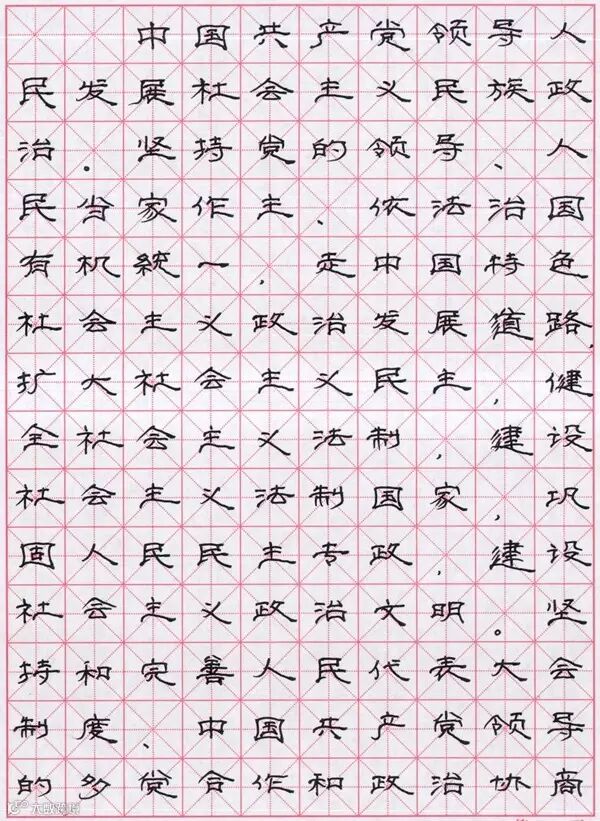 中国共产党领导人
民发展社会主义民族政
治。坚持党的领导、人
民当家作主、依法治国
有机統一，走中国特色
社会主义政治发展道路，
扩大社会主义民主，健
全社会主义法制，建设
社会主义法制国家，巩
固人民民主专政，建设
社会主义政治文明。坚
持和完善人民代表大会
制度、中国共产党领导
的多党合作和政治协商